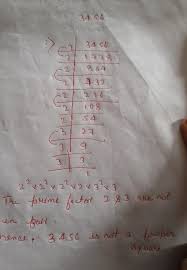 3456
2 | 3456
2 | 1728
2 | 864
2 | 432
2 | 216
2 | 108
2 | 54
3 | 27
3 | 9
3 | 3
1
2² x 2² x 2² x 2 x 3² x 3
The prime factor 2 & 3 are not
in
hence, 3456 is not a
square